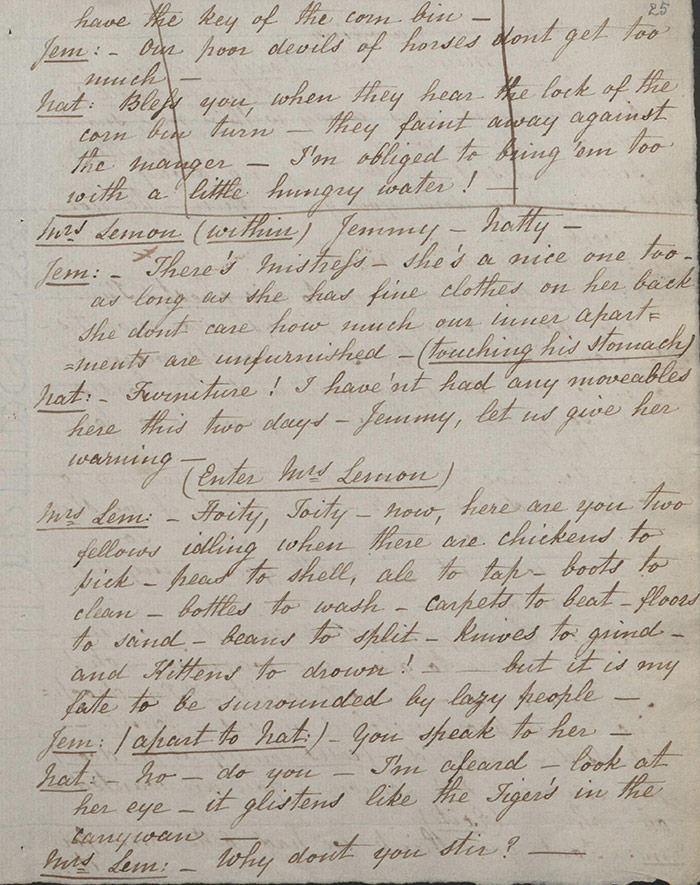 25
have the key of the corn bin –
Jem: – Our poor devils of horses dont get too
much –
Nat: Bless you, when they hear the lock of the
corn bin turn – they faint away against
the manger – I'm obliged to bring 'em too
with a little hungry water! –
Mrs Lemon (within) Jemmy – Natty –
Jem: – There's Mistress – she's a nice one too –
as long as she has fine clothes on her back
she dont care how much our inner apart=
=ments are unfurnished – (touching his stomach)
Nat: – Furniture! I have'nt had any moveables
here this two days – Jemmy, let us give her
warning –
(Enter Mrs Lemon)
Mrs Lem: – Hoity, Toity – now, here are you two
fellows idling when there are chickens to
pick – peas to shell, ale to tap – boots to
clean – bottles to wash – carpets to beat – floors
to sand – beans to split – knives to grind –
and Kittens to drown! – – but it is my
fate to be surrounded by lazy people –
Jem: (apart to Nat:) – You speak to her –
Nat: – No – do you – I'm afeard – look at
her eye – it glistens like the Tiger's in the
carrywan –
Mrs Lem: – Why dont you stir? –